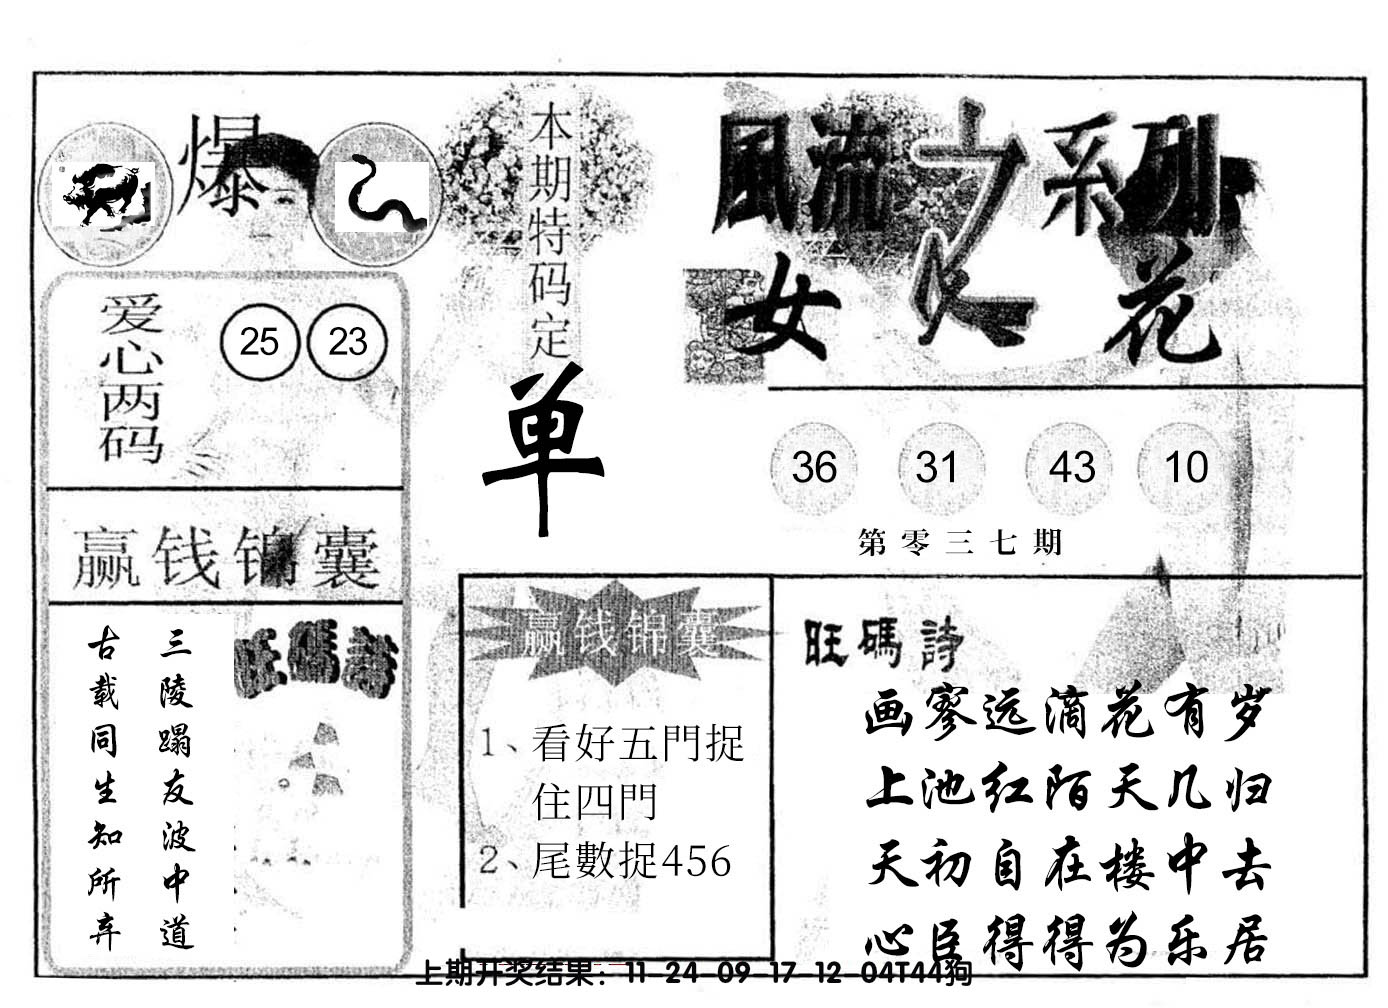 爆
本期特码定
单
風流之系列
女人花
爱心两码
25 23
36 31 43 10
第零三七期
赢钱锦囊
三陵蹋友波中道
古载同生知所弃
旺碼詩
赢钱锦囊
1、看好五門捉
住四門
2、尾數捉456
旺碼詩
画寥远滴花有岁
上池红陌天几归
天初自在楼中去
心臣得得为乐居
上期开奖结果：11-24-09-17-12-04T44狗